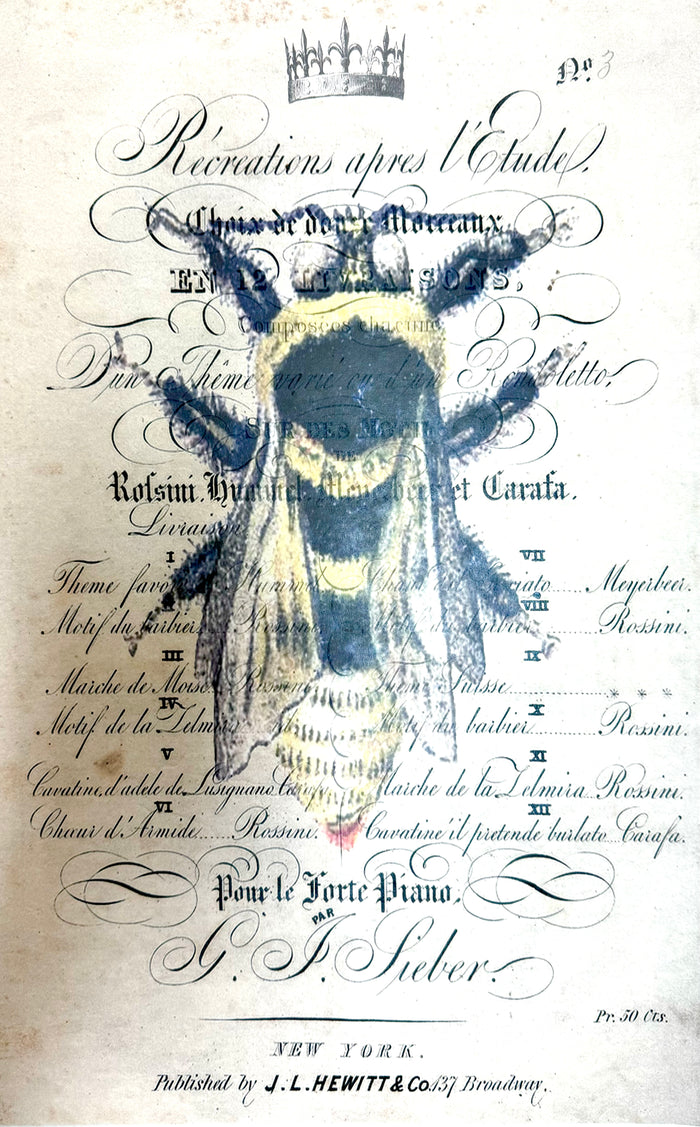 No. 3
Récreations apres l'Etude.
Choix de douze Morceaux
EN 12 LIVRAISONS,
Composées chacune
D'un Thême varié ou d'un Rondoletto,
SUR DES MOTIFS
DE
Rossini, Hummel, Meyerbeer et Carafa.
Livraison
I
Theme favori Hummel
II
Motif du barbier Rossini
III
Marche de Moise. Rossini
IV
Motif de la Zelmira
V
Cavatine d'adele de Lusignano Carafa
VI
Chœur d'Armide...... Rossini.
VII
Meyerbeer.
VIII
Motif du barbier Rossini.
IX
Theme Suisse * * *
X
Motif du barbier Rossini.
XI
Marche de la Zelmira.. Rossini.
XII
Cavatine il pretende burlato Carafa.
Pour le Forte Piano,
PAR
G. J. Sieber.
Pr. 50 Cts.
NEW YORK.
Published by J.L.HEWITT & Co. 137 Broadway.